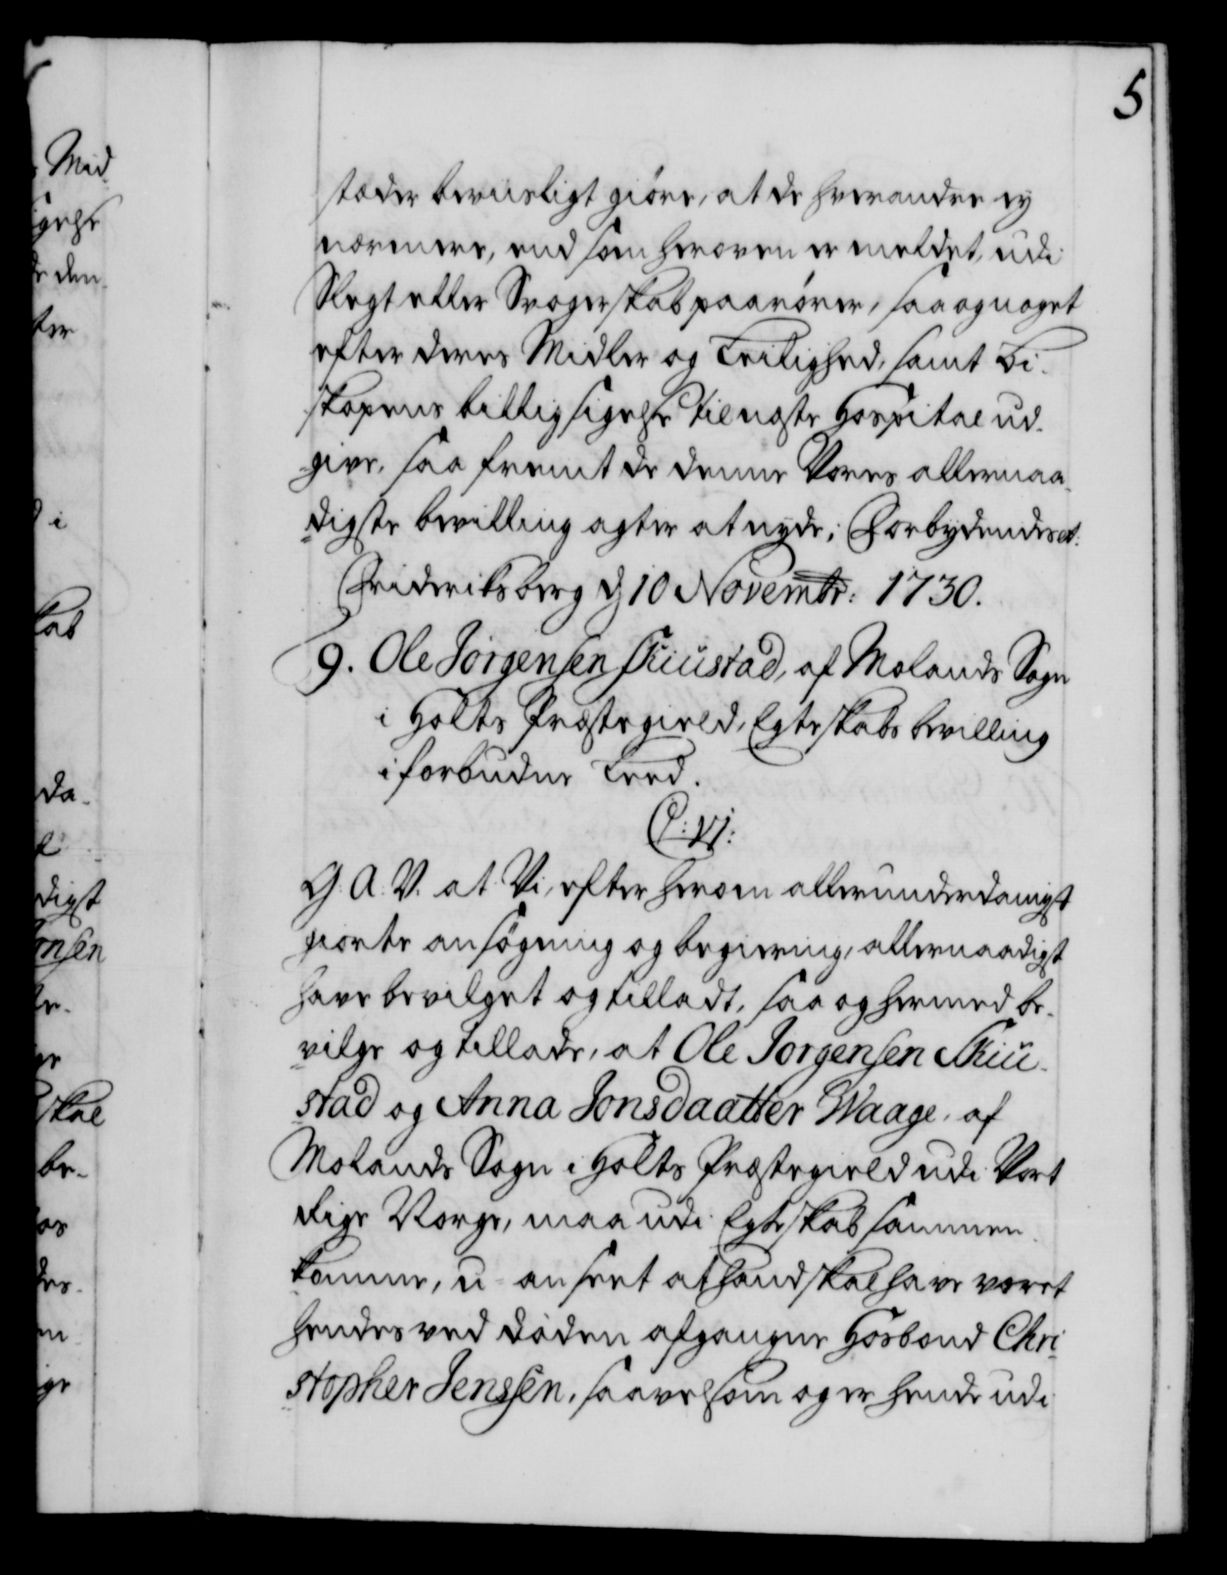 5
stæder beviisligt giöre, at de hverandre ey
nærmere, end som heroven er meldet, udi
Slegt eller Svogerskab paarörer, saa og noget
efter deres Midler og Leilighed, samt Bi-
skopens billig sigelse til næste Hospital ud-
give, saa fremt de denne Vores allernaa-
digste bevilling agter at nyde; Forbydendes et:
Friderichsberg d 10 Novembr: 1730.
9. Ole Jörgensen Skiustad, af Molands Sogn
i Holts Præstegield, Egteskabs bevilling
i forbudne Leed.
C: VI:
G. A. V. at Vi, efter herom allerunderdanigst
giorte ansögning og begiering, allernaadigst
have bevilget og tilladt, saa og hermed be-
vilge og tillade, at Ole Jorgensen Skiu-
stad og Anna Jonsdaatter Waage, af
Molands Sogn i Holts Præstegield udi Vort
Rige Norge, maa udi Egteskab sammen-
komme, u-anseet at hand skal have været
hendes ved döden afgangne Hosbond Chri-
stopher Jenssen, saavelsom og er hende udi